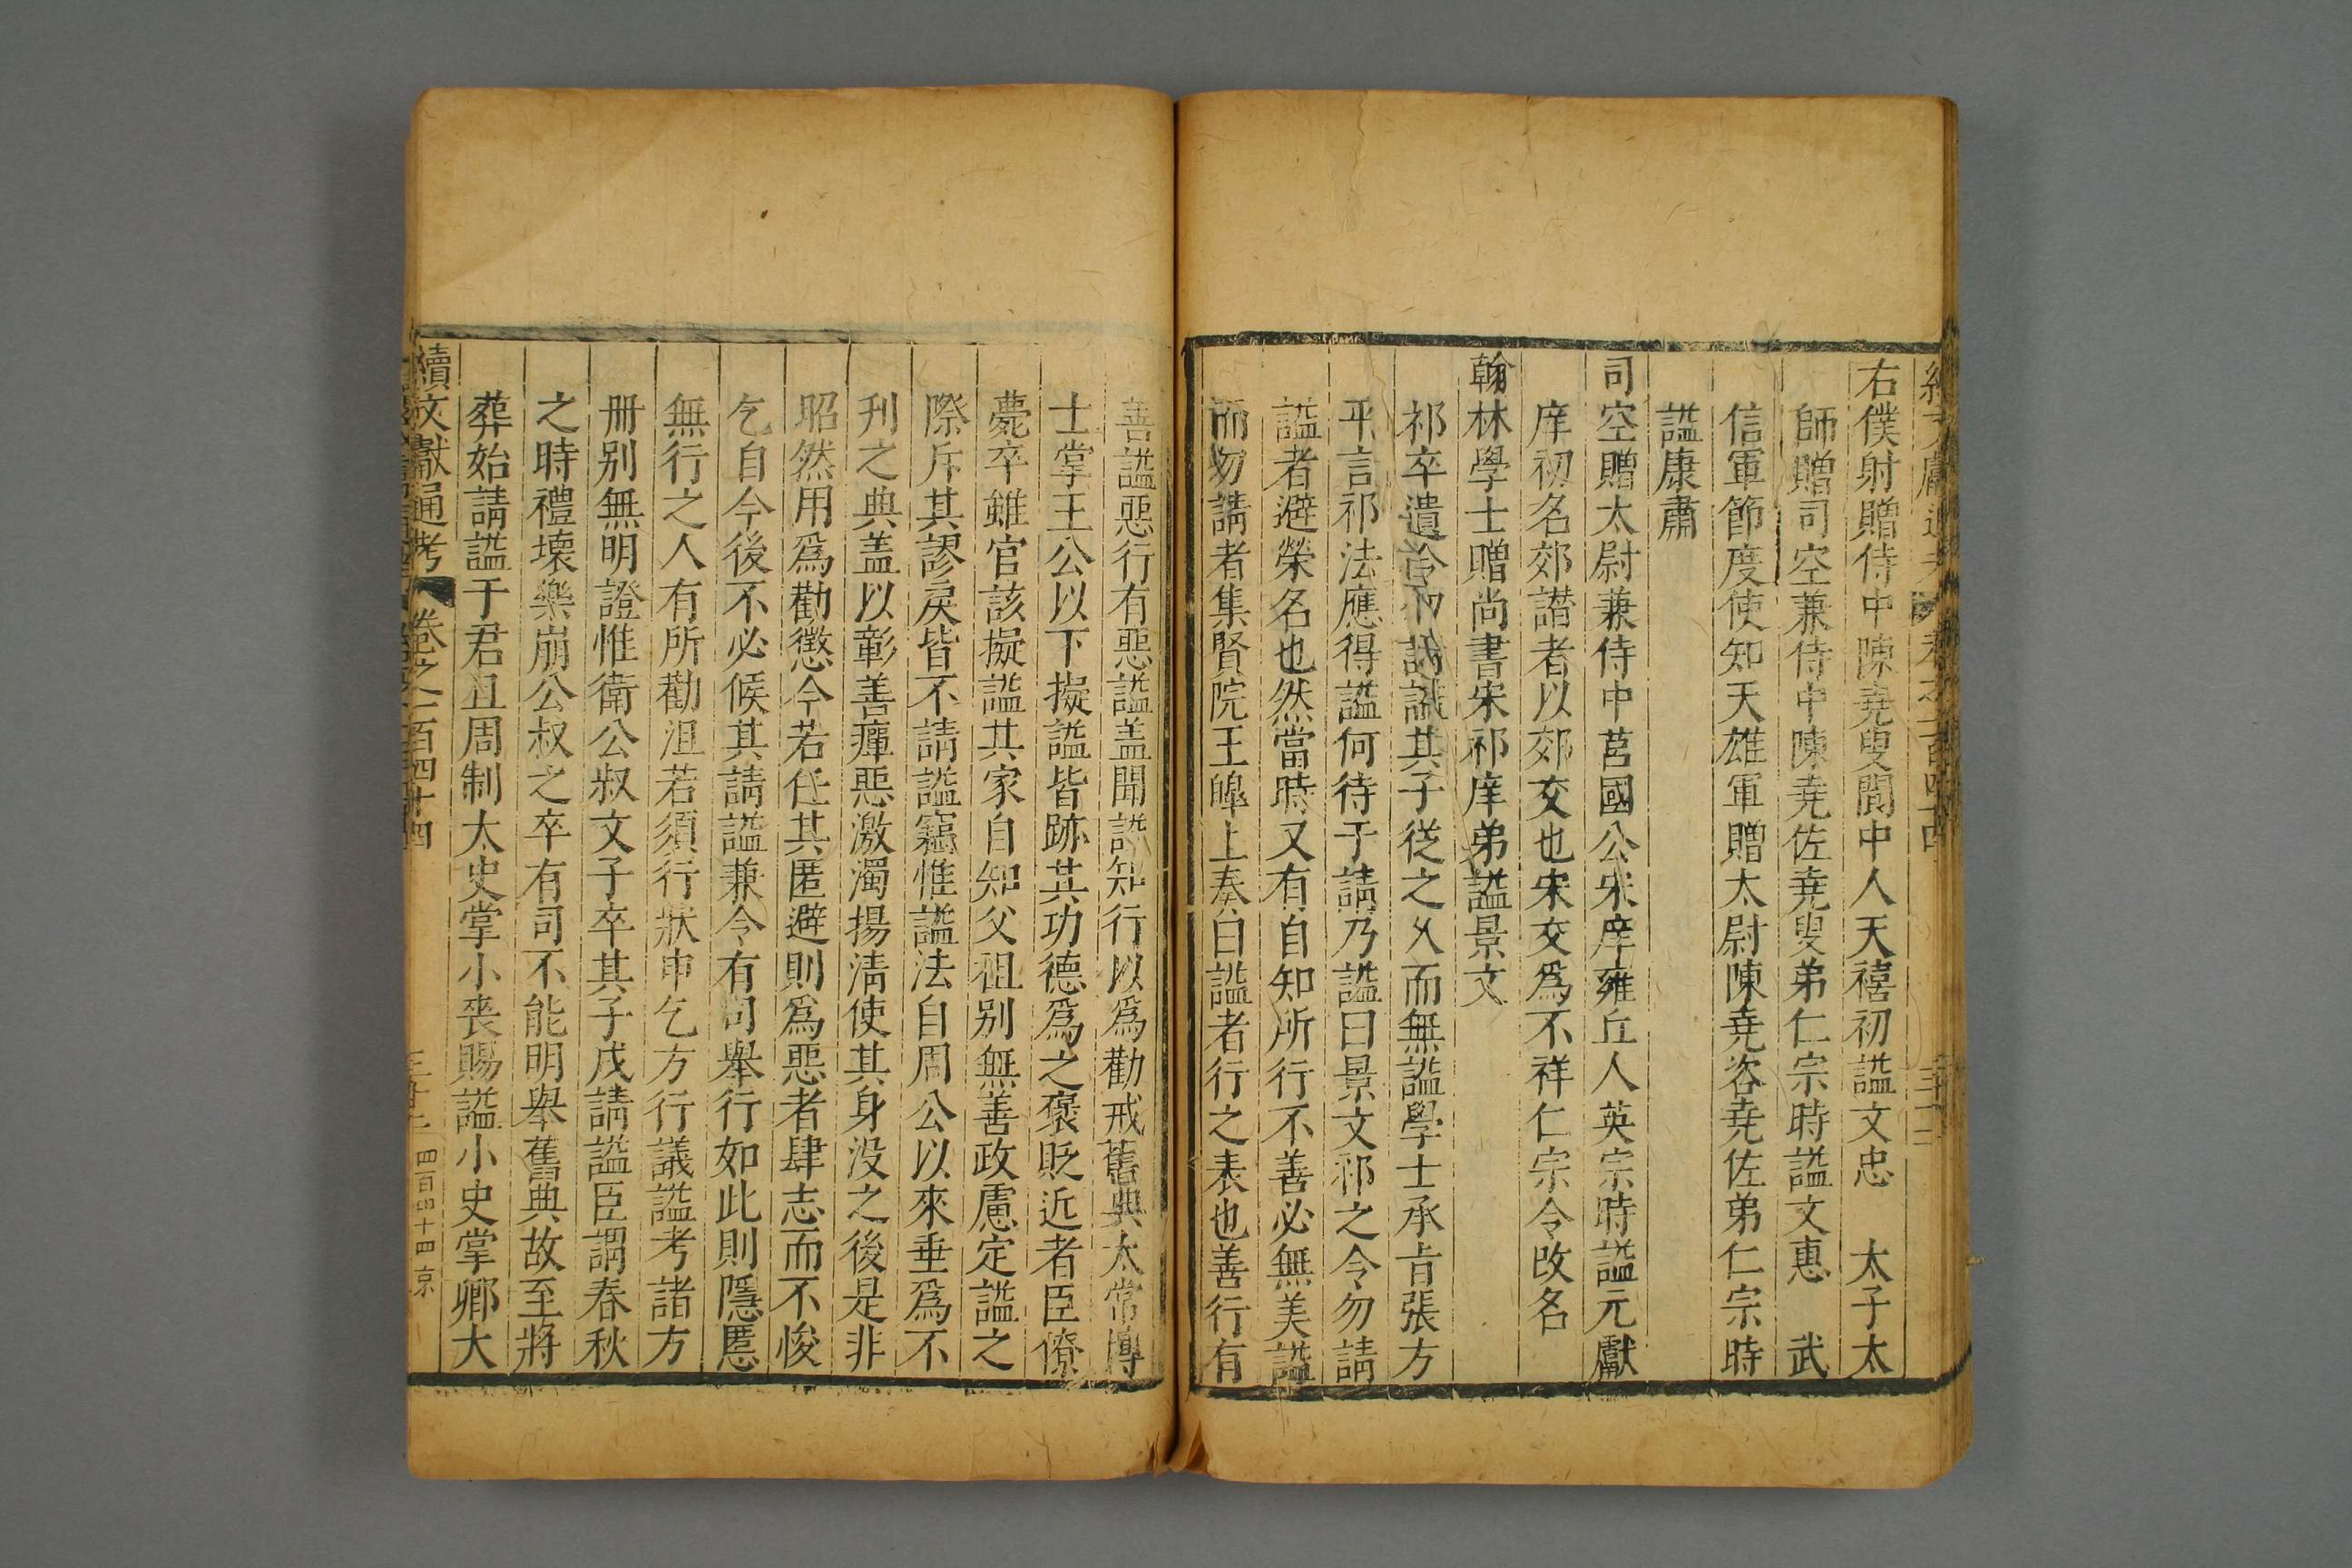 右僕射贈侍中陳堯叟閬中人天禧初謚文忠　太子太
師贈司空兼侍中陳堯佐堯叟弟仁宗時謚文惠　武
信軍節度使知天雄軍贈太尉陳堯咨堯佐弟仁宗時
謚康肅
司空贈太尉兼侍中莒國公宋庠雍丘人英宗時謚元獻
庠初名郊譖者以郊交也宋交爲不祥仁宗令改名
翰林學士贈尚書宋祁庠弟謚景文
祁卒遺其子從之乆而無謚學士承旨張方
平言祁法應得謚何待于請乃謚曰景文祁之令勿請
謚者避榮名也然當時又有自知所行不善必無美謚
而勿請者集賢院王皡上奏曰謚者行之表也善行有
善謚惡行有惡謚盖聞謚知行以爲勸戒舊典太常博
士掌王公以下擬謚皆跡其功德爲之褒貶近者臣僚
薨卒雖官該擬謚其家自知父祖别無善政慮定謚之
際斥其謬戾皆不請謚竊惟謚法自周公以來垂爲不
刋之典盖以彰善癉惡激濁揚淸使其身没之後是非
昭然用爲勸懲今若任其匿避則爲惡者肆志而不悛
乞自今後不必候其請謚兼令有司舉行如此則隱慝
無行之人有所勸沮若須行狀申乞方行議謚考諸方
冊别無明證惟衛公叔文子卒其子戌請謚臣謂春秋
之時禮壞樂崩公叔之卒有司不能明舉舊典故至將
葬始請謚于君且周制太史掌小喪賜謚小史掌卿大
續文獻通考　卷之一百四十四　四百四十四京